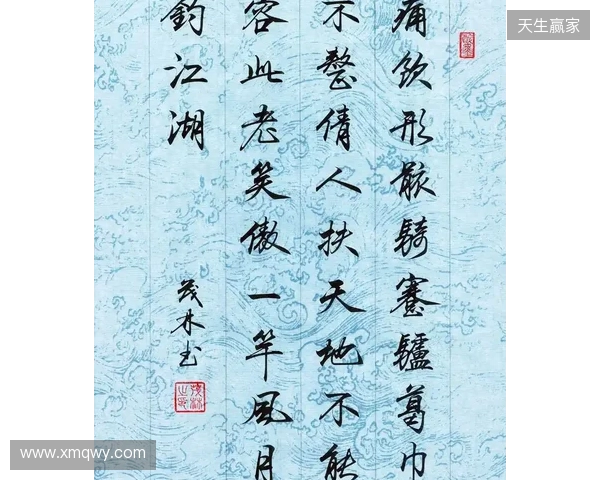 天生赢家
痛飲形骸騎蹇驢葛巾
不整倩人扶天地不能
容此老笑傲一竿風月
釣江湖
茂林书
www.xmqwy.com